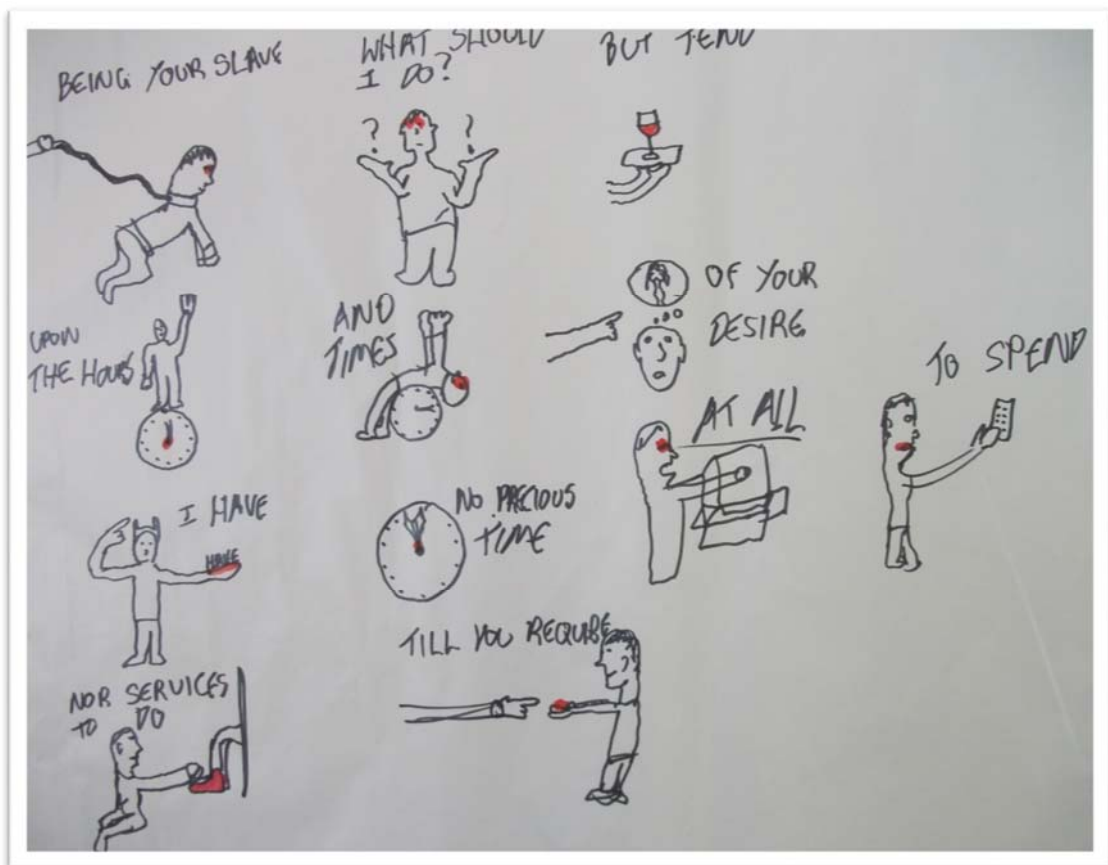 BEING YOUR SLAVE
WHAT SHOULD
I DO?
BUT TEND
? ?
UPON
THE HOURS
AND
TIMES
OF YOUR
DESIRE
I HAVE
HAVE
NO PRECIOUS
TIME
AT ALL
TO SPEND
NOR SERVICES
TO DO
TILL YOU REQUIRE